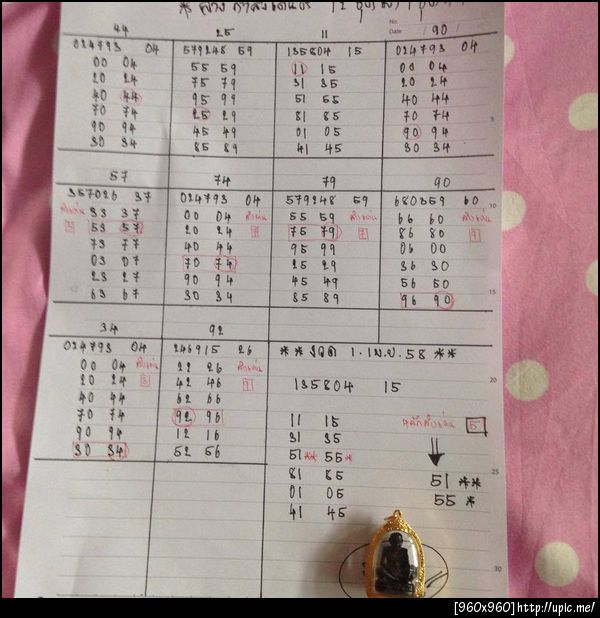 44 25 11 90
No.
Date
024793 04 579248 59 135804 15 024793 04
00 04 55 59 11 15 00 04
20 24 75 79 31 35 20 24
40 44 95 99 51 55 40 44
70 74 25 29 81 85 70 74
90 94 45 49 01 05 90 94
30 34 85 89 41 45 30 34
57 74 79 90
357026 37 024793 04 579248 59 680359 60
33 37 00 04 55 59 66 60
53 57 20 24 75 79 86 80
73 77 40 44 95 99 06 00
03 07 70 74 25 29 36 30
23 27 90 94 45 49 56 50
63 67 30 34 85 89 96 90
34 92
024793 04 246915 26 ** งวด 1.เม.ย.58 **
00 04 22 26
20 24 42 46 135804 15
40 44 62 66
70 74 92 96 11 15
90 94 12 16 31 35 5
30 34 52 56 51** 55*
81 85 51 **
01 05 55 *
41 45
5
10
15
20
25
30
[960x960]http://upic.me/